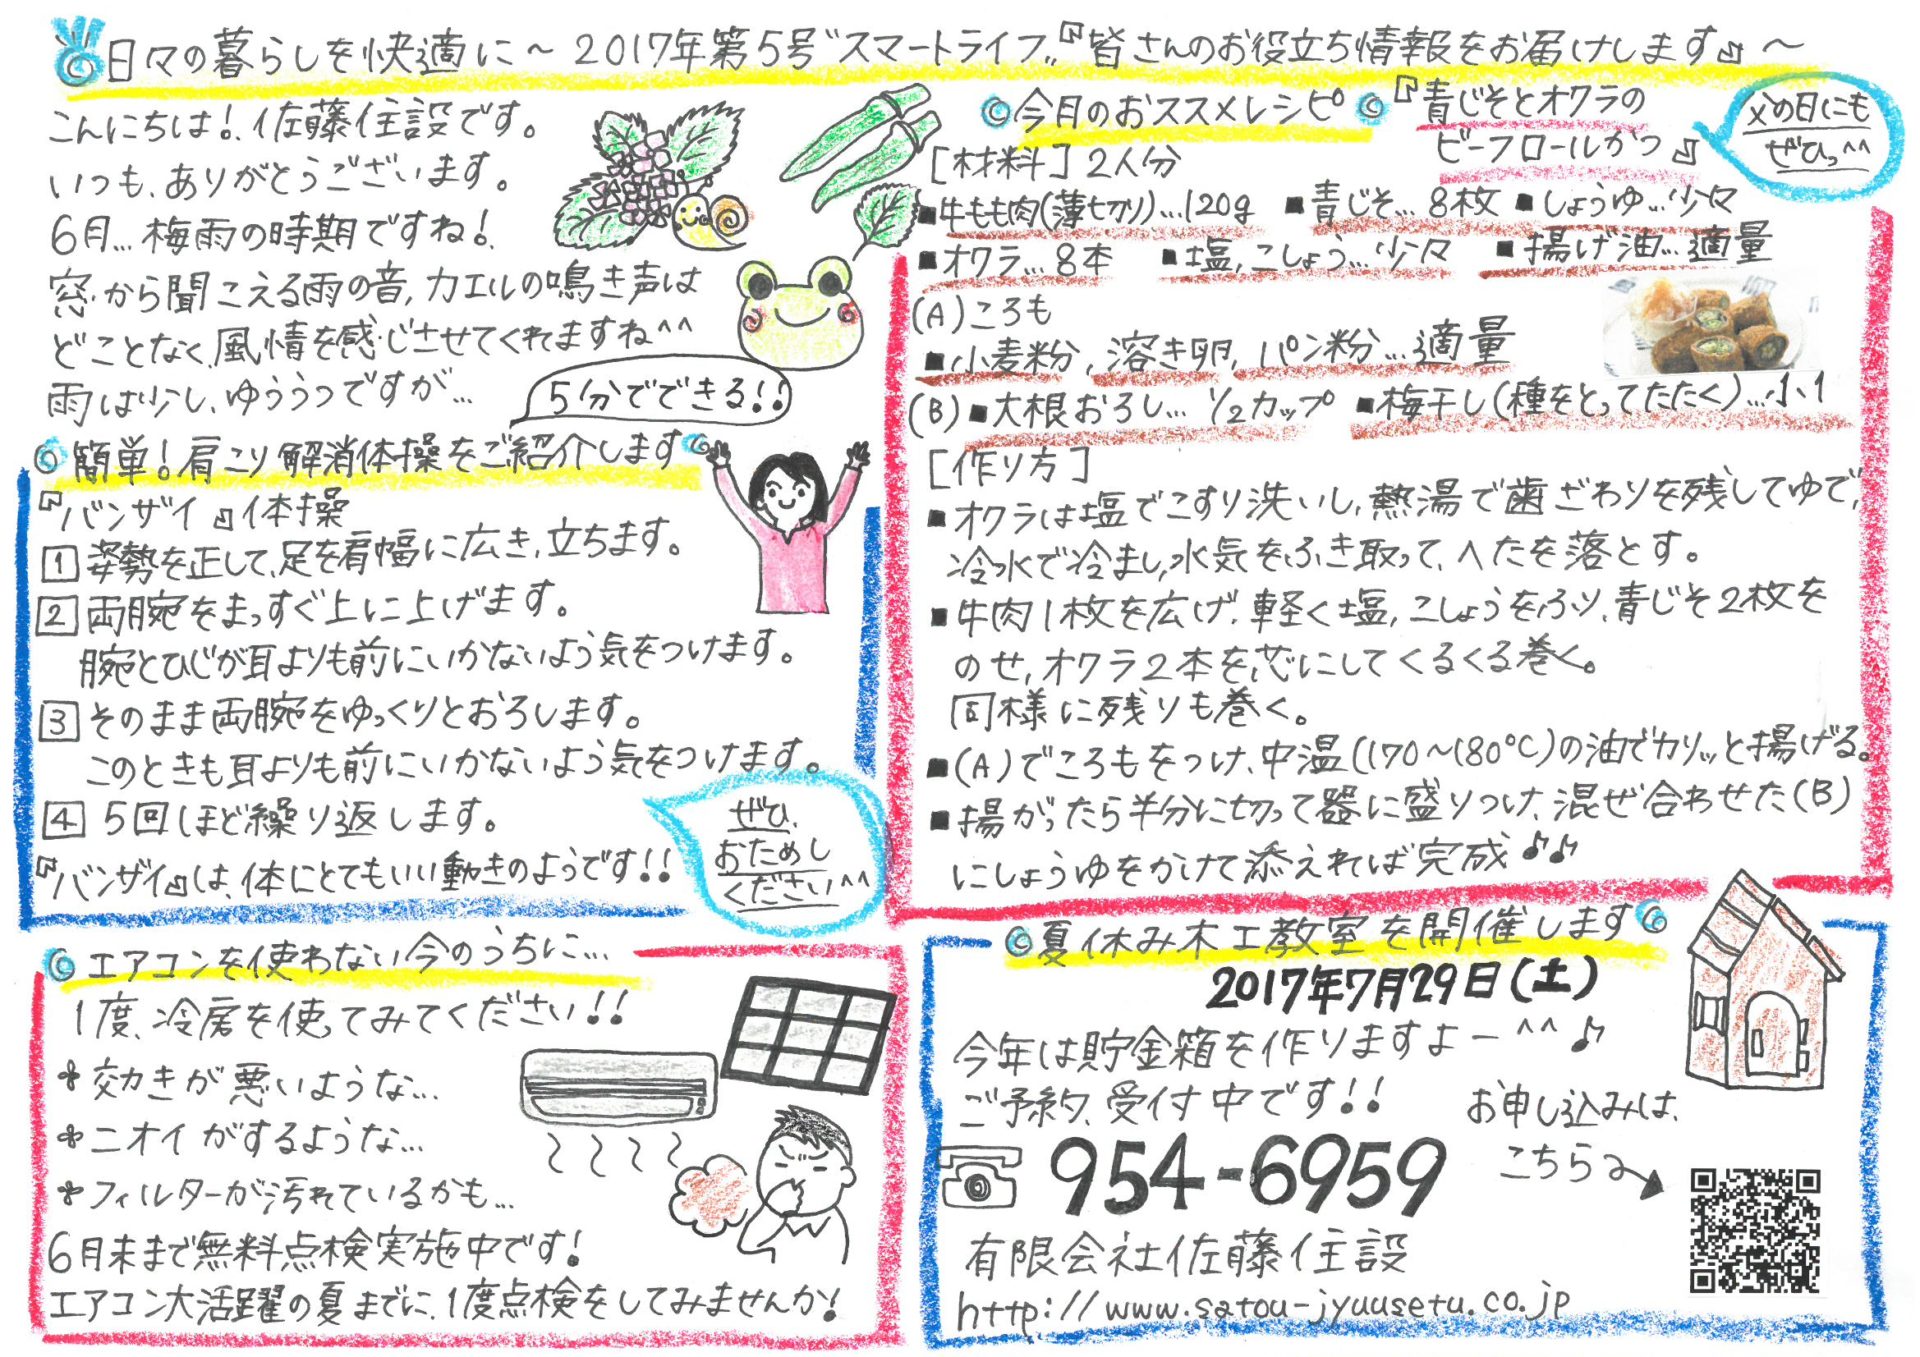 日々の暮らしを快適に～2017年第5号〝スマートライフ〟『皆さんのお役立ち情報をお届けします』～
こんにちは!、佐藤住設です。
いつも、ありがとうございます。
6月…梅雨の時期ですね!、
窓から聞こえる雨の音、カエルの鳴き声は
どことなく、風情を感じさせてくれますね^^
雨は少し、ゆううつですが…
5分でできる!!
◎簡単!肩こり解消体操をご紹介します◎
『バンザイ』体操
1 姿勢を正して、足を肩幅に広き、立ちます。
2 両腕をまっすぐ上に上げます。
腕とひじが耳よりも前にいかないよう気をつけます。
3 そのまま両腕をゆっくりとおろします。
このときも耳よりも前にいかないよう気をつけます。
4 5回ほど繰り返します。
『バンザイ』は、体にとてもいい動きのようです!!
ぜひ、
おためし
ください^^
◎今月のおススメレシピ◎『青じそとオクラの
ビーフロールかつ』
父の日にも
ぜひっ^^
[材料]2人分
■牛もも肉(薄切り)…120g ■青じそ…8枚 ■しょうゆ…少々
■オクラ…8本 ■塩,こしょう…少々 ■揚げ油…適量
(A)ころも
■小麦粉,溶き卵,パン粉…適量
(B)■大根おろし…1/2カップ ■梅干し(種をとってたたく)…小1
[作り方]
■オクラは塩でこすり洗いし,熱湯で歯ざわりを残してゆで,
冷水で冷まし,水気をふき取って、へたを落とす。
■牛肉1枚を広げ,軽く塩,こしょうをふり、青じそ2枚を
のせ,オクラ2本を芯にしてくるくる巻く。
同様に残りも巻く。
■(A)でころもをつけ、中温(170～180℃)の油でカリッと揚げる。
■揚がったら半分に切って器に盛りつけ、混ぜ合わせた(B)
にしょうゆをかけて添えれば完成♪♪
◎エアコンを使わない今のうちに…
1度、冷房を使ってみてください!!
*効きが悪いような…
*ニオイがするような…
*フィルターが汚れているかも…
6月末まで無料点検実施中です!
エアコン大活躍の夏までに、1度点検をしてみませんか!
◎夏休み木工教室を開催します◎
2017年7月29日(土)
今年は貯金箱を作りますよー^^♪
ご予約、受付中です!!
お申し込みは、
こちら
954-6959
有限会社佐藤住設
http://www.satou-jyuusetu.co.jp